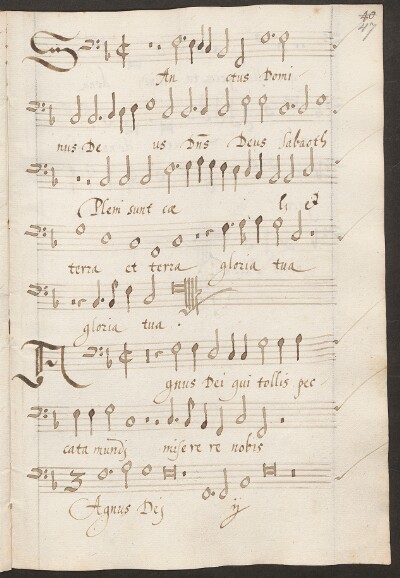 40
47
San ctus Domi
nus De us Dñs Deus Sabaoth
Pleni sunt cæ li et
terra et terra gloria tua
gloria tua .
Agnus Dei qui tollis pec
cata mundj misere re nobis
Agnus Dej ij